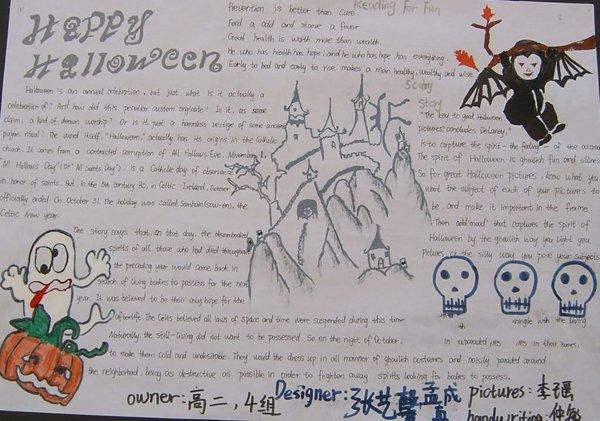 Happy
Halloween
Prevention is better than cure.
Feed a cold and starve a fever.
Good health is worth more than wealth.
He who has health has hope; and he who has hope has everything.
Early to bed and early to rise makes a man healthy, wealthy, and wise.
Reading For Fun
Scary
Story
Halloween is an annual celebration, but just what is it actually a
celebration of? And how did this peculiar custom originate? Is it, as some
claim, a kind of demon worship? Or is it just a harmless vestige of some ancient
pagan ritual? The word itself, "Halloween," actually has its origins in the Catholic
church. It comes from a contracted corruption of All Hallows Eve. November 1,
"All Hallows Day" (or "All Saints Day"), is a Catholic day of observance
in honor of saints. But, in the 5th century BC, in Celtic Ireland, summer
officially ended on October 31. The holiday was called Samhain (sow-en), the
Celtic New year.
One story says that, on that day, the disembodied
spirits of all those who had died throughout
the preceding year would come back in
search of living bodies to possess for the next
year. It was believed to be their only hope for the
afterlife. The Celts believed all laws of space and time were suspended during this time
"The key to good Halloween
pictures," concludes Delaney,
"Is to capture the spirit - the feeling - of the occasion
The spirit of Halloween is ghoulish fun and silliness
So for great Halloween pictures, know what you
want the subject of each of your pictures to
be, and make it important in the frame.
Then add "mood" that captures the spirit of
Halloween by the ghoulish way you light you
pictures or the silly way you pose your subjects
mingle with the living
Naturally, the still-living did not want to be possessed. So on the night of October
in their homes,
to make them cold and undesirable. They would the dress up in all manner of ghoulish costumes and noisily paraded around
the neighborhood, being as destructive as possible in order to frighten away spirits looking for bodies to possess.
owner: 高二,4组
Designer: 张艺馨 孟成真
pictures: 李瑶
handwriting: 仲敏